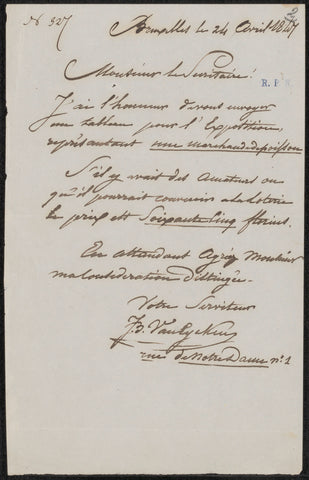 N° 327
Bruxelles le 24 Avril 1847
Monsieur le Secrétaire!
R. P
J'ai l'honneur de vous envoyer
un tableau pour l'Exposition,
représentant une marchande de poisson
S'il y avait des amateurs ou
qu'il pourrait convenir a la loterie
le prix est Soixante Cinq florins.
En attendant Agréez Monsieur
ma Considération Distinguée.
Votre Serviteur
J.B. Van Eycken
rue de Notre Dame n° 1